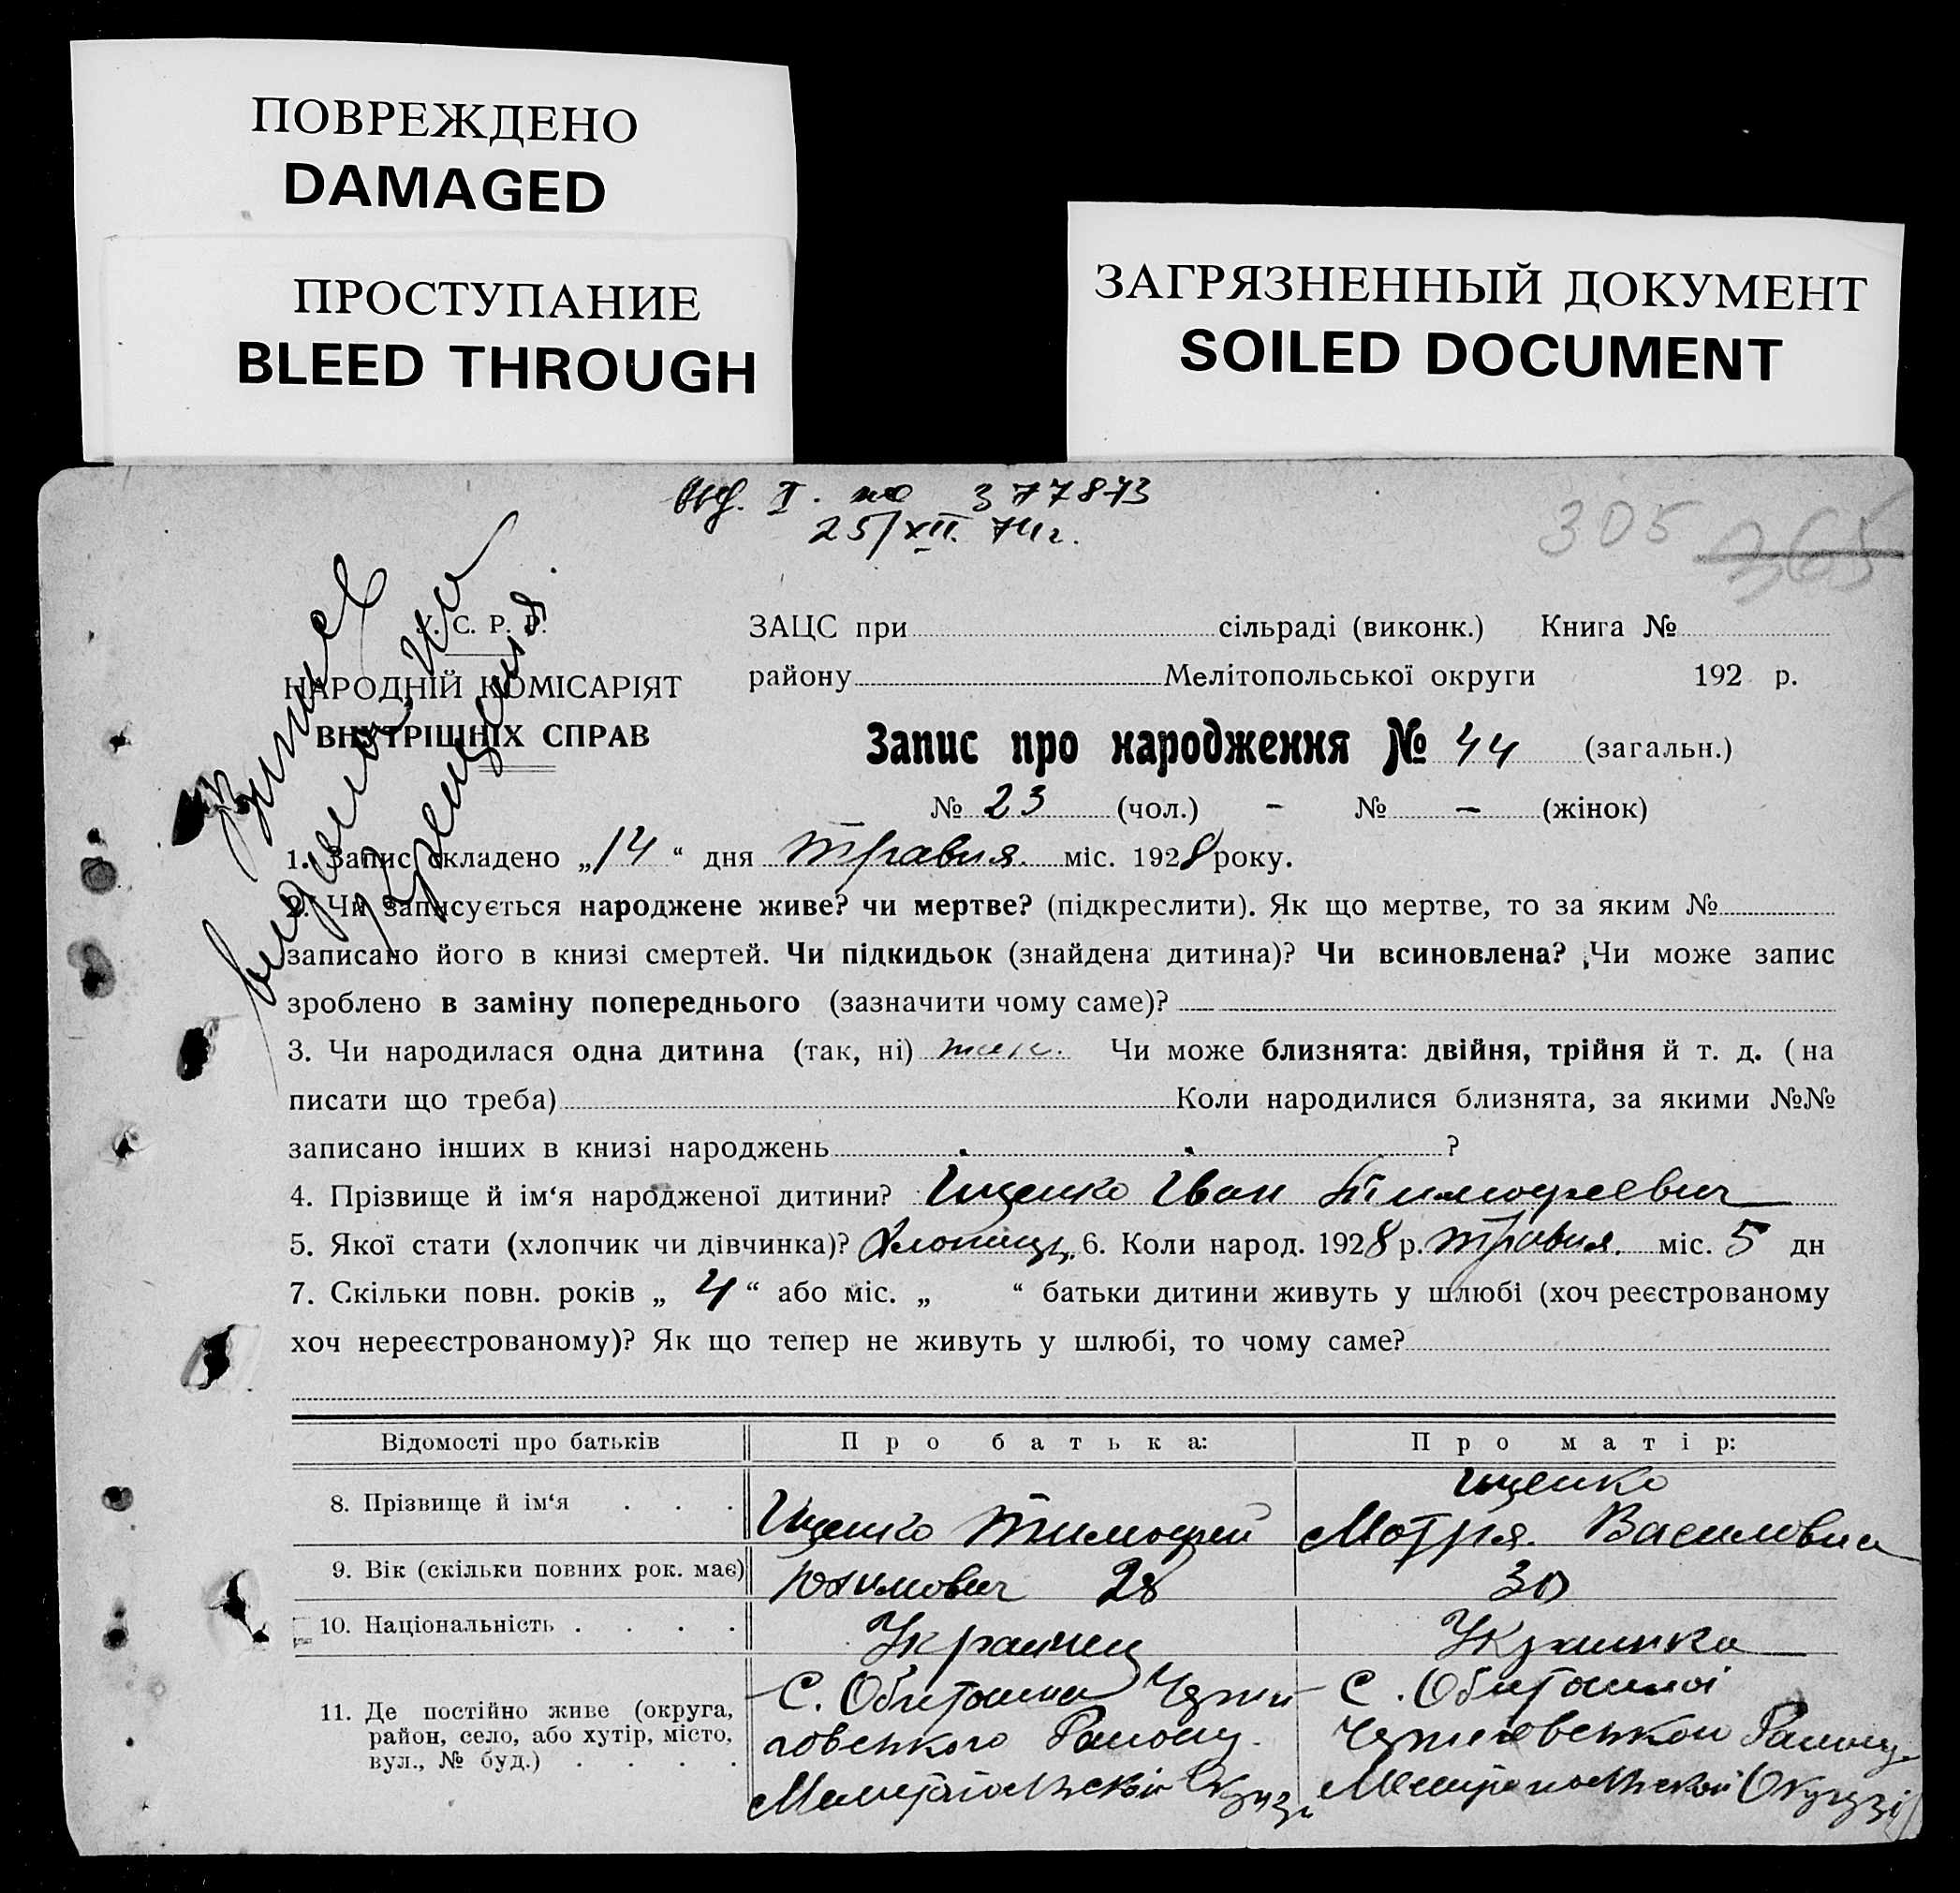 ПОВРЕЖДЕНО
DAMAGED
ПРОСТУПАНИЕ
BLEED THROUGH
ЗАГРЯЗНЕННЫЙ ДОКУМЕНТ
SOILED DOCUMENT
I. 377873
25/XII. 74г.
305 365
У. С. Р. Р.
НАРОДНІЙ КОМІСАРІЯТ
ВНУТРІШНІХ СПРАВ
ЗАЦС при сільраді (виконк.) Книга №
району Мелітопольської округи 192 р.
Запис про народження № 44 (загальн.)
№ 23 (чол.) - № - (жінок)
1. Запис складено „14“ дня травня. міс. 1928 року.
2. Чи записується народжене живе? чи мертве? (підкреслити). Як що мертве, то за яким №
записано його в книзі смертей. Чи підкидьок (знайдена дитина)? Чи всиновлена? Чи може запис
зроблено в заміну попереднього (зазначити чому саме)?
3. Чи народилася одна дитина (так, ні) так. Чи може близнята: двійня, трійня й т. д. (на
писати що треба) Коли народилися близнята, за якими №№
записано інших в книзі народжень ?
4. Прізвище й ім‘я народженої дитини? Іщенко Іван Тимофеевич
5. Якої стати (хлопчик чи дівчинка)? Хлопець. 6. Коли народ. 1928 р. травня. міс. 5 дн
7. Скільки повн. років „ 4 “ або міс. „ “ батьки дитини живуть у шлюбі (хоч реєстрованому
хоч нереєстрованому)? Як що тепер не живуть у шлюбі, то чому саме?
Відомості про батьків Про батька: Про матір:
Іщенко
8. Прізвище й ім‘я . . . Іщенко Тимофей Мотря. Василовна
9. Вік (скільки повних рок. має) Юхимович 28 30
10. Національність . . . . Украинец Украинка
11. Де постійно живе (округа, С. Обиточна С.
район, село, або хутір, місто, Району.
вул., № буд.) . . . .